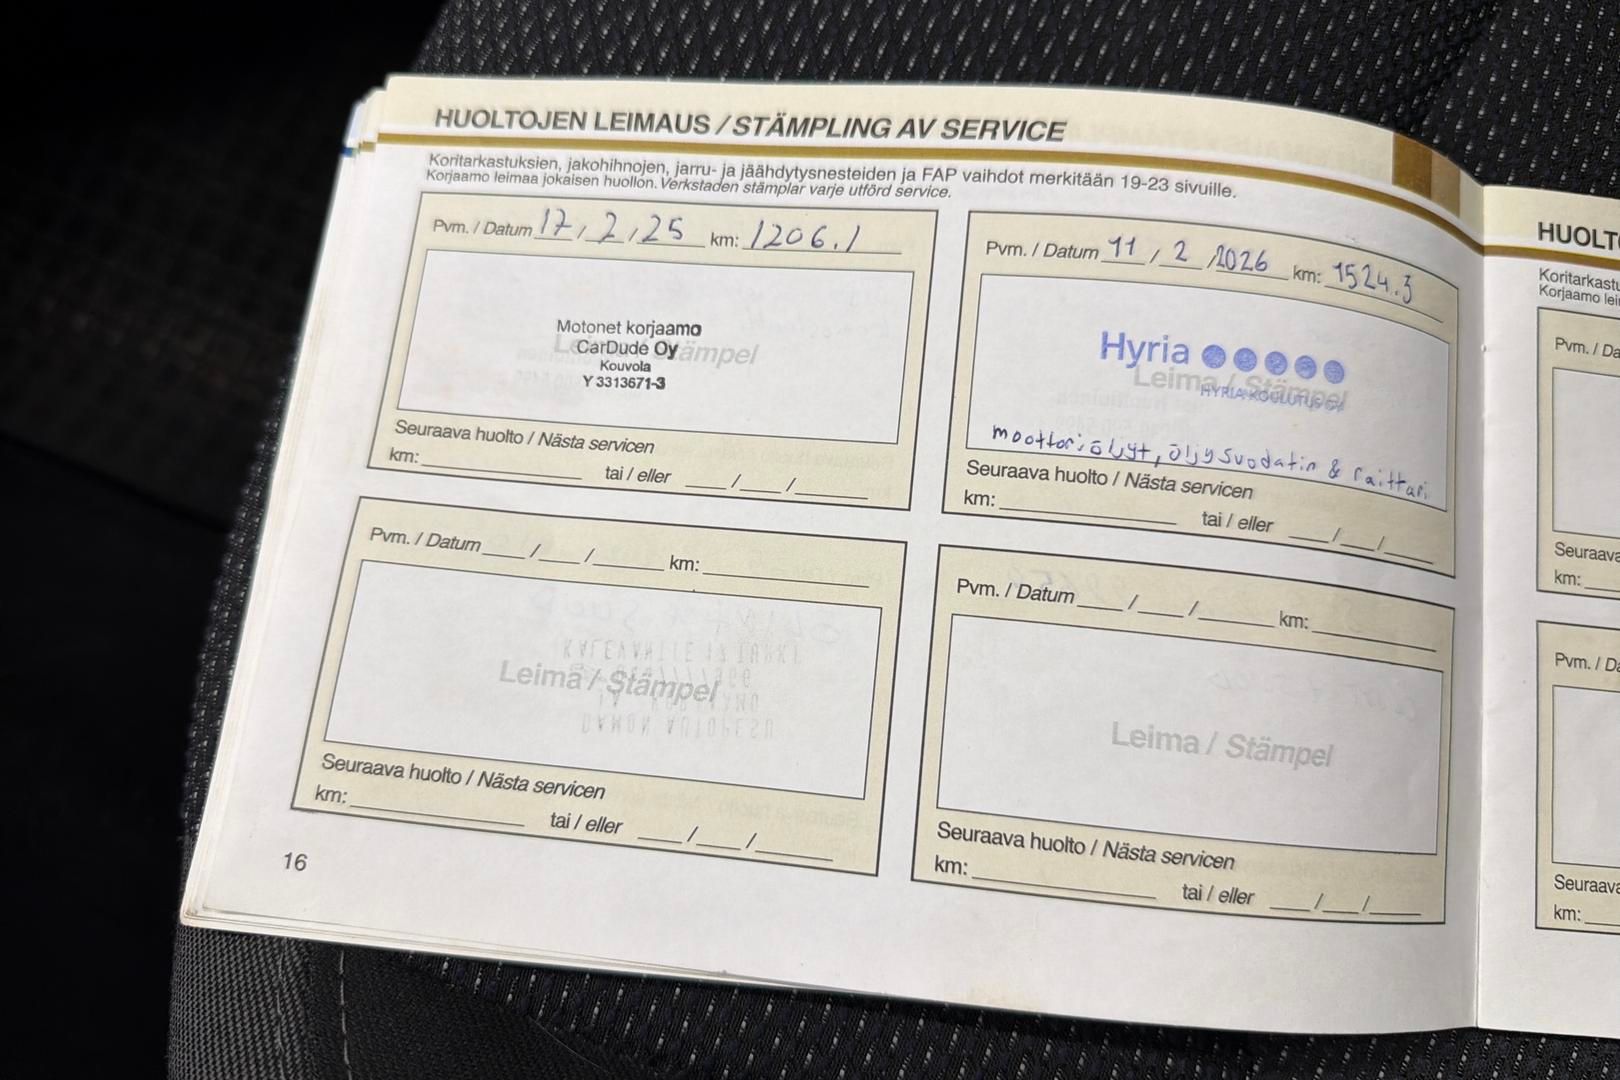 HUOLTOJEN LEIMAUS / STÄMPLING AV SERVICE
Koritarkastuksien, jakohihnojen, jarru- ja jäähdytysnesteiden ja FAP vaihdot merkitään 19-23 sivuille.
Korjaamo leimaa jokaisen huollon. Verkstaden stämplar varje utförd service.
Pvm. / Datum 17 / 2 / 25 km: 1206.1
Leima / Stämpel
Motonet korjaamo
CarDude Oy
Kouvola
Y 3313671-3
Seuraava huolto / Nästa servicen
km: tai / eller / /
Pvm. / Datum 11 / 2 / 2026 km: 1524.3
Hyria
Leima / Stämpel
HYRIA KOULUTUS OY
moottoriöljyt, öljysuodatin & raittari
Seuraava huolto / Nästa servicen
km: tai / eller / /
Pvm. / Datum / / km:
Leima / Stämpel
Seuraava huolto / Nästa servicen
km: tai / eller / /
Pvm. / Datum / / km:
Leima / Stämpel
Seuraava huolto / Nästa servicen
km: tai / eller / /
16
HUOLTO
Koritarkastu
Korjaamo lei
Pvm. / Da
Seuraava
km:
Pvm. / Da
Seuraava
km: